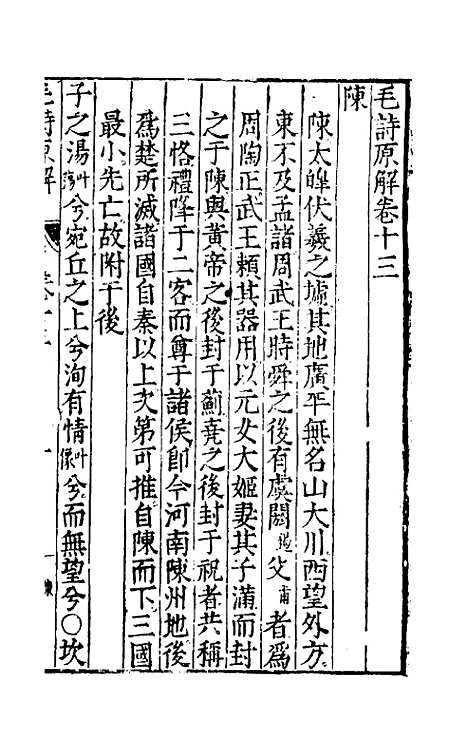 毛詩原解卷十三
陳
陳太皥伏羲之墟其地廣平無名山大川西望外方
東不及孟諸周武王時舜之後有虞閼遏父甫者爲
周陶正武王賴其器用以元女大姬妻其子滿而封
之于陳與黃帝之後封于薊堯之後封于祝者共稱
三恪禮降于二客而尊于諸侯卽今河南陳州地後
爲楚所滅諸國自秦以上次第可推自陳而下三國
最小先亡故附于後
子之湯叶蕩兮宛丘之上兮洵有情叶像兮而無望兮○坎
毛詩原解